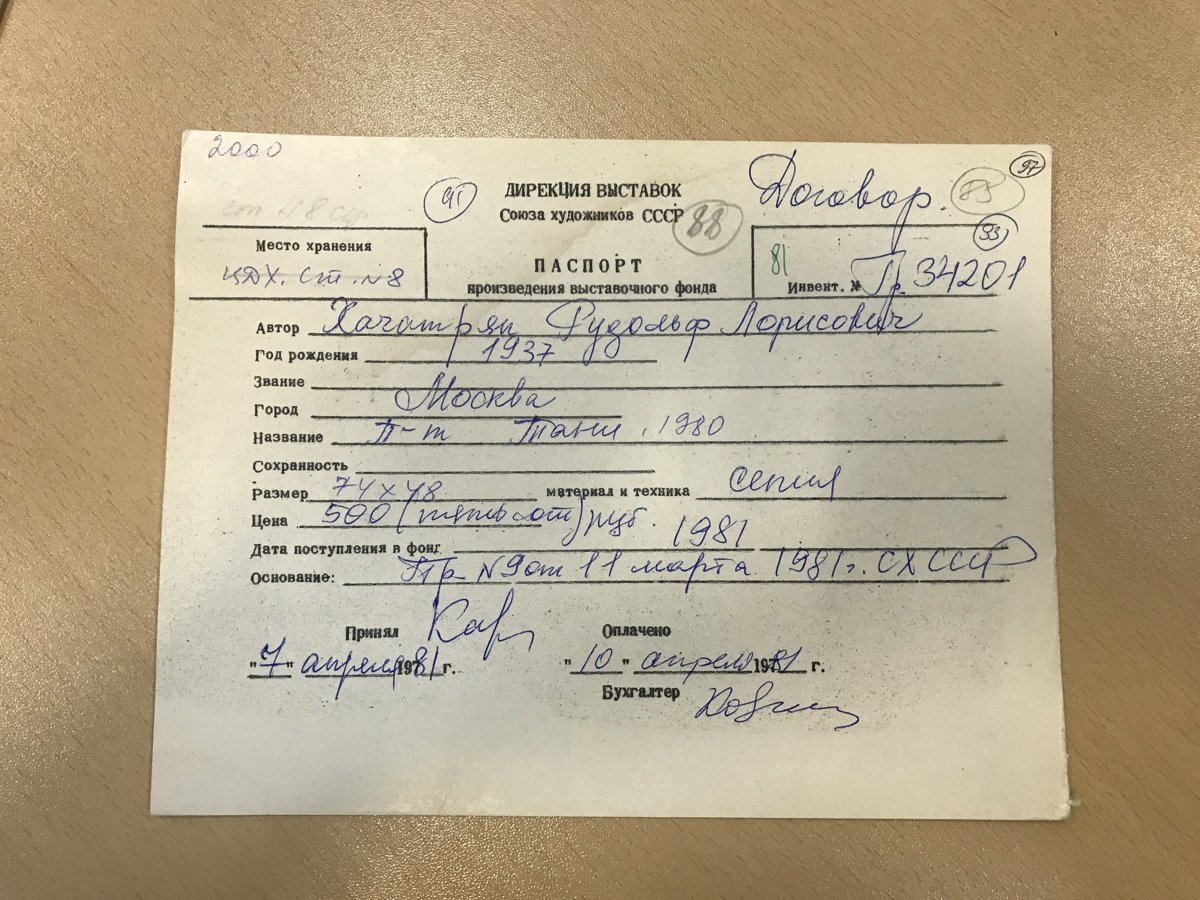 2000
91
ДИРЕКЦИЯ ВЫСТАВОК
Союза художников СССР
88
Договор.
85
97
93
Место хранения
ЦДХ. ст. №8
ПАСПОРТ
произведения выставочного фонда
81
Инвент. № Гр. 34201
Автор Хачатрян Рудольф Лорисович
Год рождения 1937
Звание
Город Москва
Название П-т Тани. 1980
Сохранность
Размер 74х48 материал и техника сепия
Цена 500 (пятьсот) руб.
Дата поступления в фонд 1981
Основание: Пр. №9 от 11 марта 1981г. СХ СССР
Принял
Оплачено
"7" апреля 1981 г.
"10" апреля 1981 г.
Бухгалтер